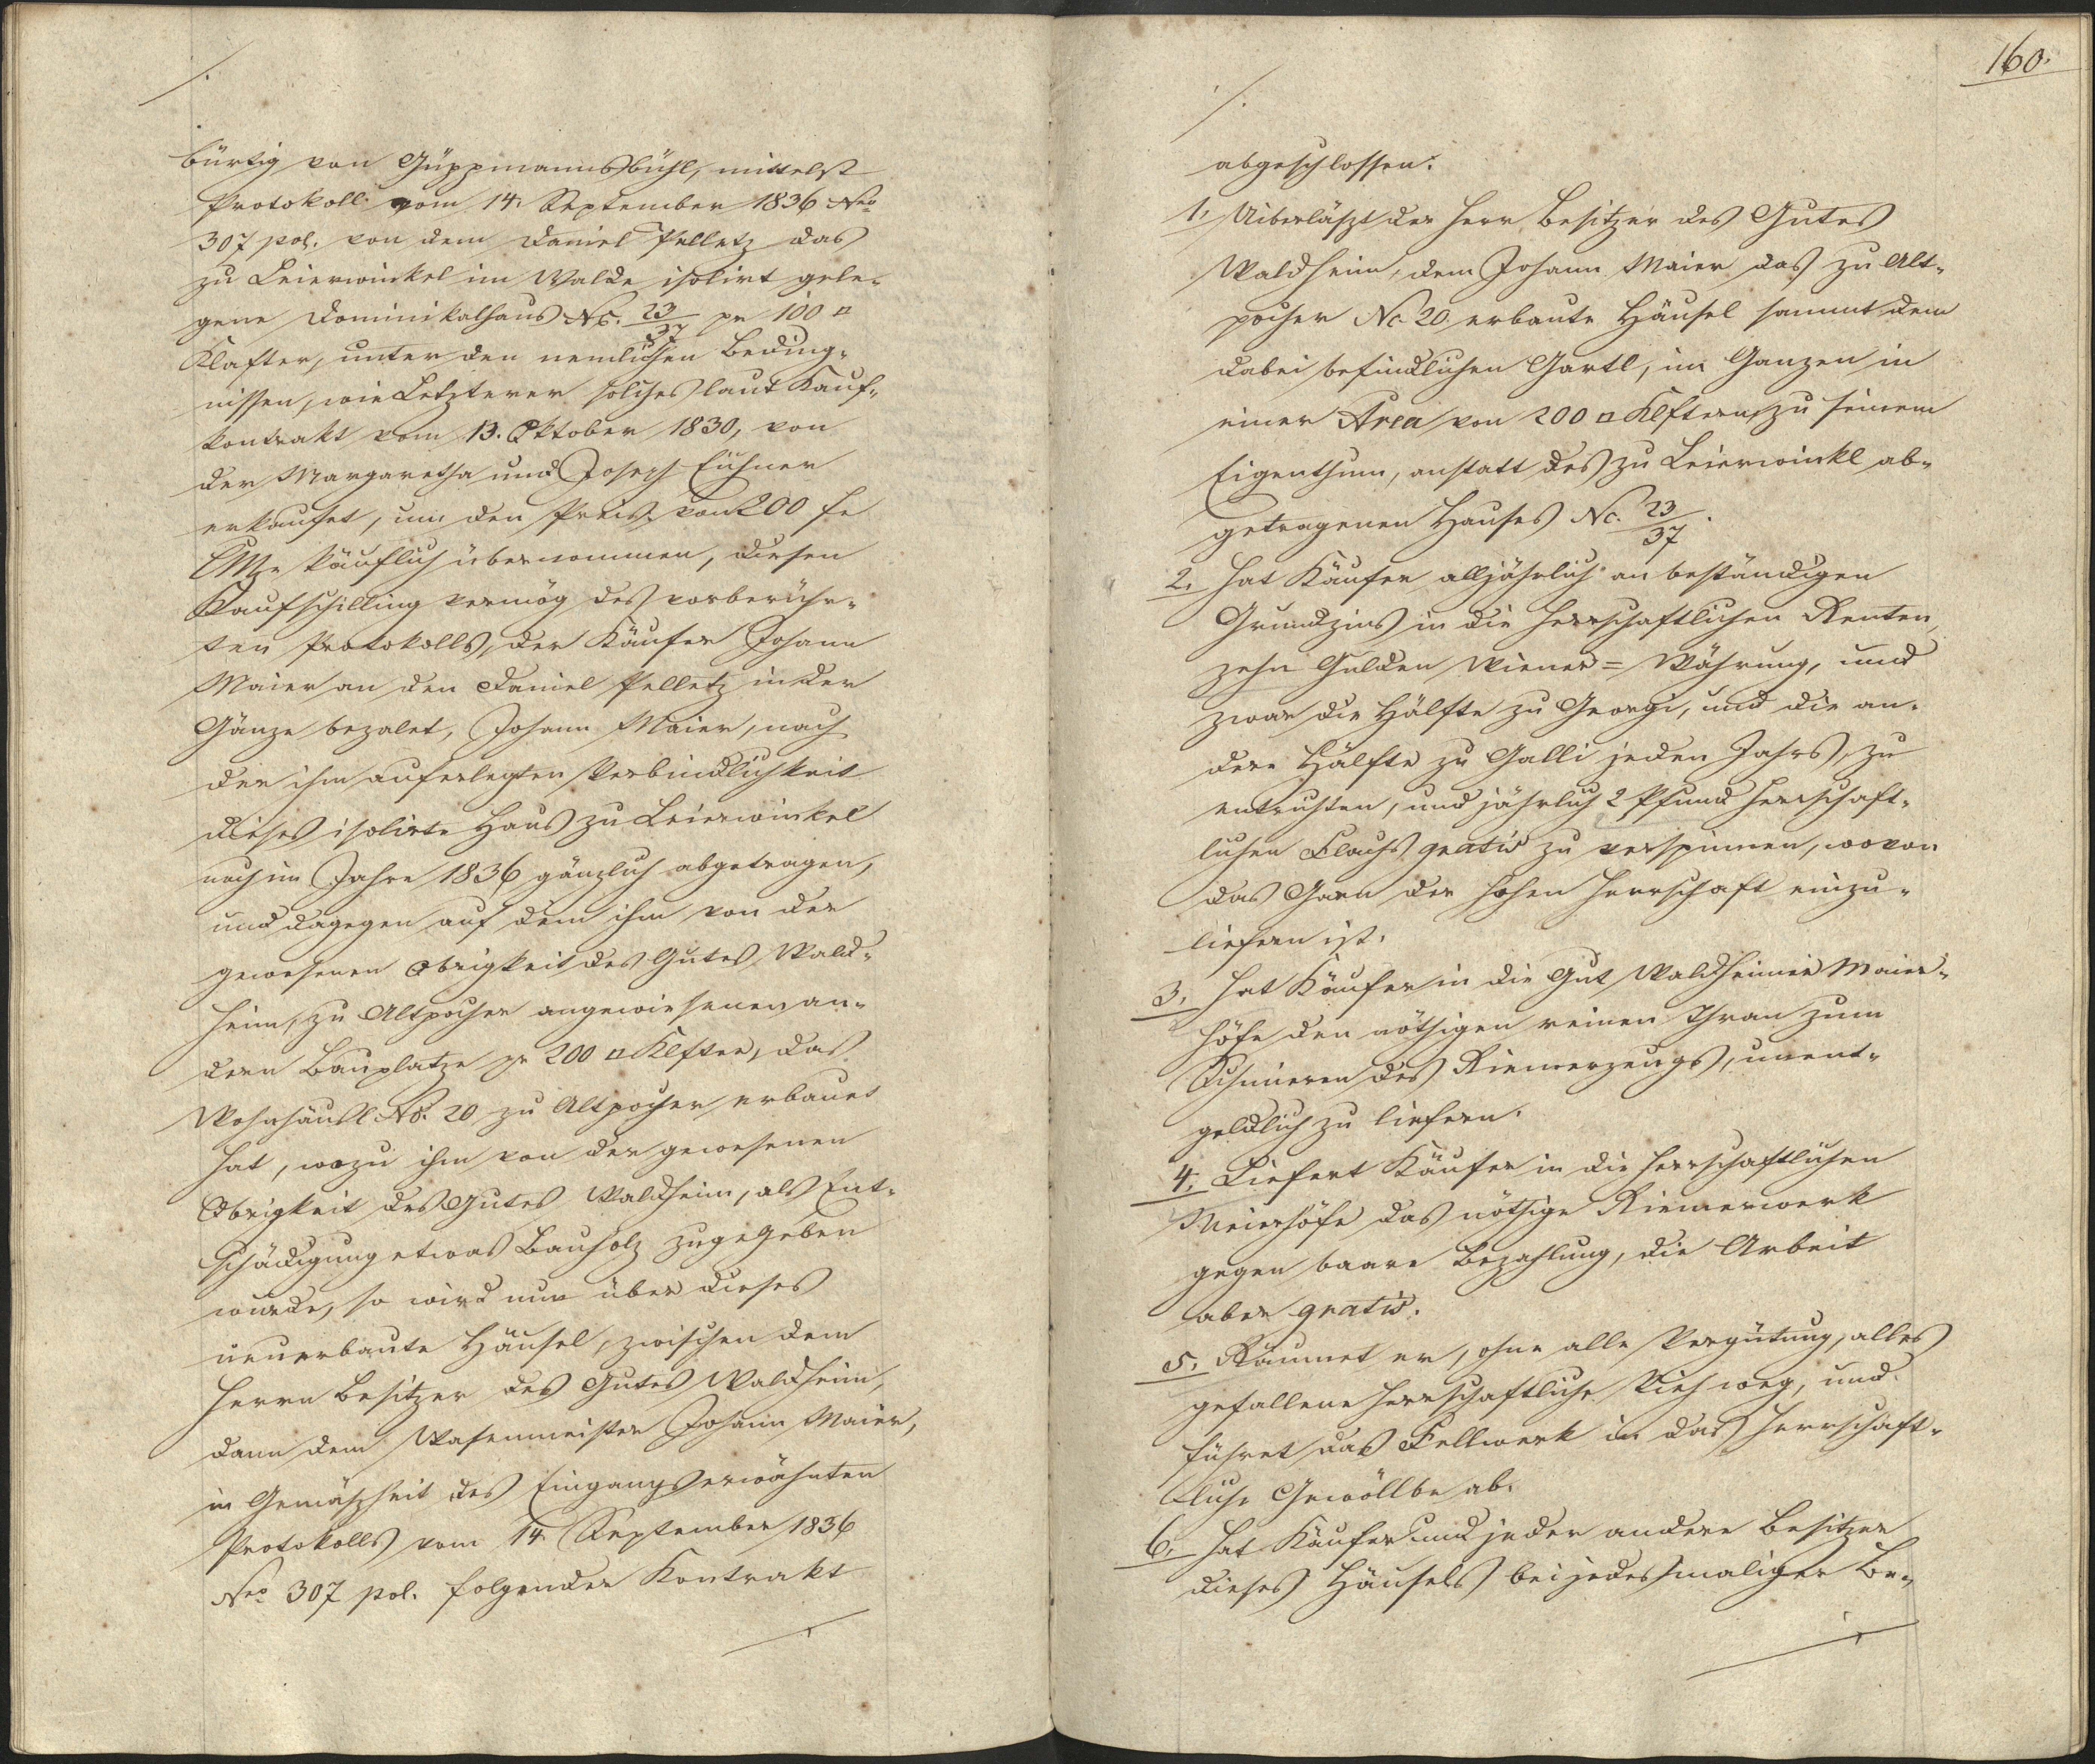 bürtig von Güppmannsbühl, mittelst
Protokoll vom 14. September 1836 Nro
307 pol. von dem Daniel Pelletz das
zu Leierwinkel im Walde isolirt gele-
gene Dominikalhaus No. 23/37 pr 100 □
Klafter, unter den nemlichen Beding-
nissen, wie Letzterer solches laut Kauf-
kontrakt vom 13. Oktober 1830, von
der Margaretha und Joseph
erkaufet, um den Preis von 200 fr
CMze käuflich übernommen, diesen
Kaufschilling vermög des vorberühr-
ten Protokolls, der Käufer Johann
Maier an den Daniel Pelletz in der
Gänze bezalet, Johann Maier, nach
der ihm auferlegten Verbindlichkeit
dieses isolirte Haus zu Leierwinkel
noch im Jahre 1836 gänzlich abgetragen,
und dagegen auf dem ihm von der
gewesenen Obrigkeit des Gutes Wald-
heim, zu Altpocher angewiesenen an-
dern Bauplatze pr 200 □ Klfter, das
Wohnhäusl No. 20 zu Altpocher erbauet
hat, wozu ihm von der gewesenen
Obrigkeit des Gutes Waldheim, als Ent-
schädigung etwas Bauholz zugegeben
wurde, so wird nun über dieses
neuerbaute Häusel, zwischen dem
Herrn Besitzer des Gutes Waldheim,
dann dem Wasenmeister Johann Maier,
in Gemäßheit des Eingangs erwähnten
Protokolls vom 14. September 1836
Nro 307 pol. folgender Kontrakt
160.
abgeschlossen.
1. Uiberläßt der Herr Besitzer des Gutes
Waldheim, dem Johann Maier das zu Alt-
pocher No 20 erbaute Häusel sammt dem
dabei befindlichen Gartl, im Ganzen in
einer Area von 200 □ Klftern, zu seinem
Eigenthum, anstatt des zu Leierwinkl ab-
getragenen Hauses No. 23/37.
2. Hat Käufer alljährlich an beständigen
Grundzins in die herrschaftlichen Renten,
zehn Gulden Wiener = Währung, und
zwar die Hälfte zu Georgi, und die an-
dere Hälfte zu Galli jeden Jahrs, zu
entrichten, und jährlich 2 Pfund herrschaft-
lichen Flachs gratis zu verspinnen, wovon
das Garn der hohen Herrschaft einzu-
liefern ist.
3. Hat Käufer in die Gut Waldheimer Maier-
höfe den nöthigen reinen Thran zum
Schmieren des Riemerzeugs, unent-
geldlich zu liefern.
4. Liefert Käufer in die herrschaftlichen
Meierhöfe das nöthige Riemerwerk
gegen baare Bezahlung, die Arbeit
aber gratis.
5. Räumet er, ohne alle Vergütung, alles
gefallene herrschaftliche Vieh weg, und
führet das Fellwerk in das herrschaft-
liche Gewöllbe ab.
6. Hat Käufer und jeder andere Besitzer
dieses Häusels bei jedesmaliger Be-